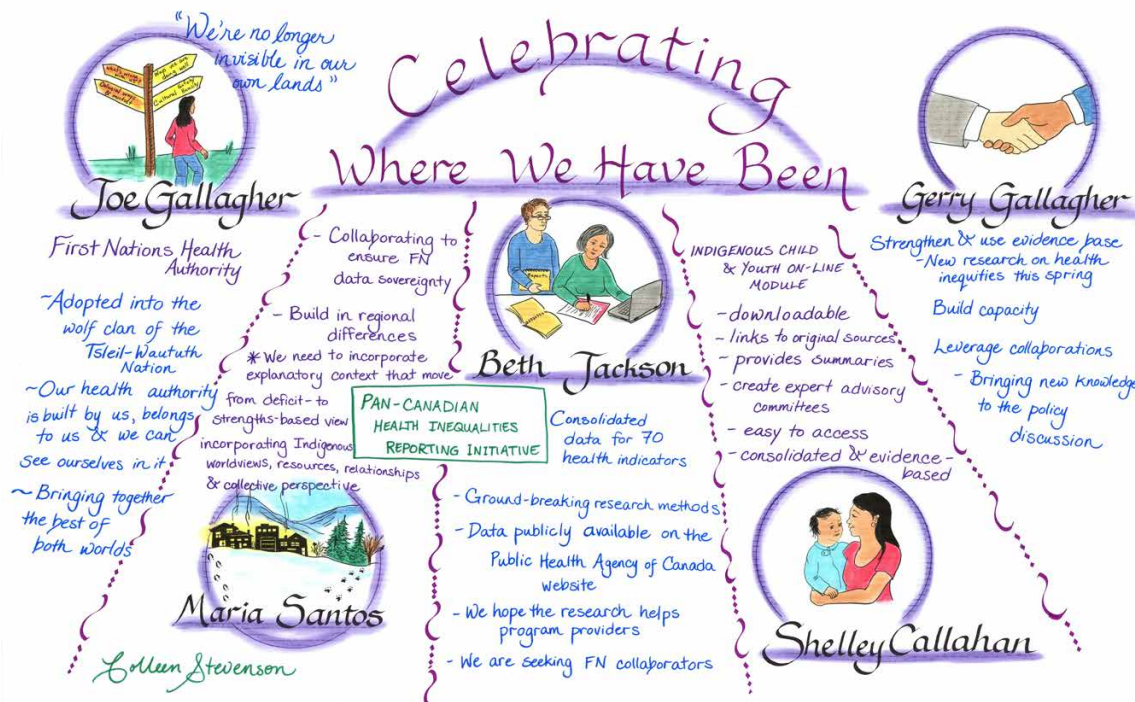 Celebrating
Where We Have Been
"We're no longer
invisible in our
own lands"
What's wrong
with us?
Ways we are
doing well
Colonial ways
Cultural Safety
& Humility
Joe Gallagher
First Nations Health
Authority
~Adopted into the
wolf clan of the
Tsleil-Waututh
Nation
~Our health authority
is built by us, belongs
to us & we can
see ourselves in it
~ Bringing together
the best of
both worlds
- Collaborating to
ensure FN
data sovereignty
- Build in regional
differences
* We need to incorporate
explanatory context that move
from deficit- to
strengths-based view
incorporating Indigenous
worldviews, resources, relationships
& collective perspective
Maria Santos
Colleen Stevenson
Reports
Beth Jackson
PAN-CANADIAN
HEALTH INEQUALITIES
REPORTING INITIATIVE
Consolidated
data for 70
health indicators
- Ground-breaking research methods
- Data publicly available on the
Public Health Agency of Canada
website
- We hope the research helps
program providers
- We are seeking FN collaborators
INDIGENOUS CHILD
& YOUTH ON-LINE
MODULE
- downloadable
- links to original sources
- provides summaries
- create expert advisory
committees
- easy to access
- consolidated & evidence-
based
Shelley Callahan
Gerry Gallagher
Strengthen & use evidence base
- New research on health
inequities this spring
Build capacity
Leverage collaborations
- Bringing new knowledge
to the policy
discussion